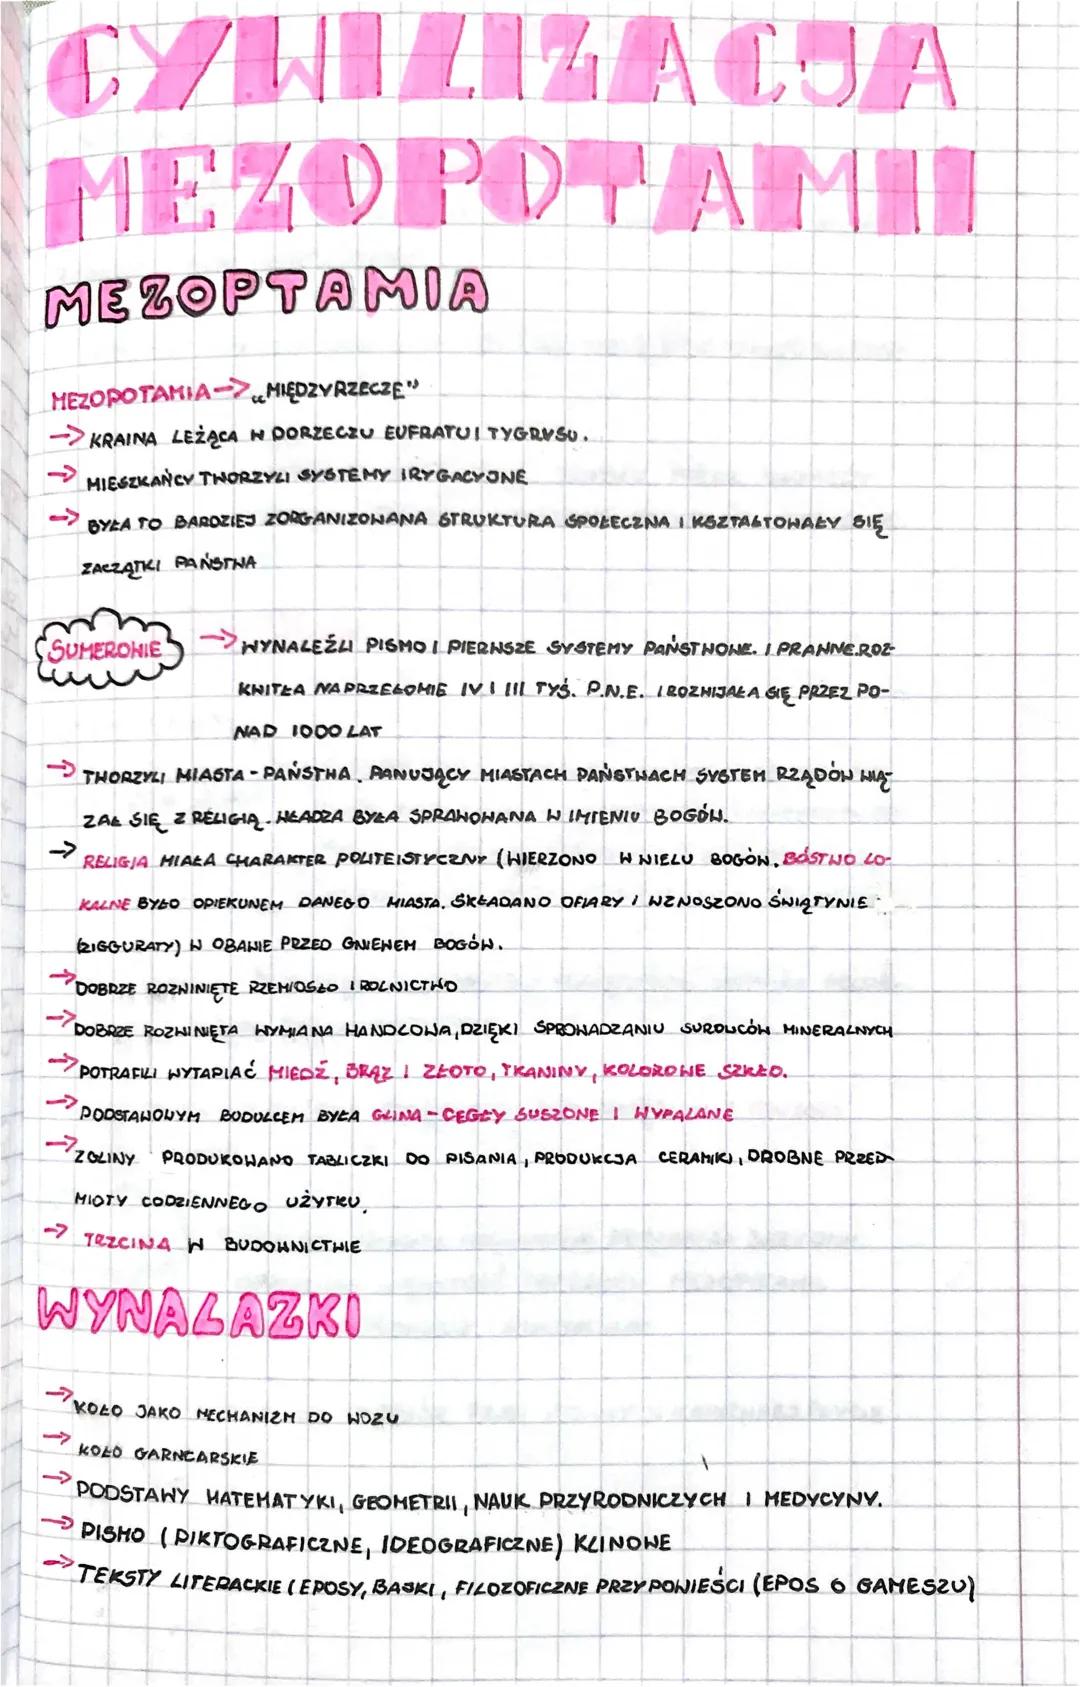 CYWILIZACJA
MEZOPOTAMII
MEZOPTAMIA
MEZOPOTAMIA → „MIĘDZYRZECZE"
→ KRAINA LEŻĄCA W DORZECZU EUFRATU I TYGRYSU.
→ MIESZKAŃCY TWORZYLI SYSTEMY IRYGACYJNE
→ BYŁA TO BARDZIEJ ZORGANIZOWANA STRUKTURA SPOŁECZNA I KSZTAŁTOWAŁY SIĘ
ZACZĄTKI PAŃSTWA
SUMEROWIE → WYNALEŹLI PISMO I PIERWSZE SYSTEMY PAŃSTWOWE. I PRAWNE. ROZ-
KWITŁA NA PRZEŁOMIE IV I III TYŚ. P.N.E. I ROZWIJAŁA SIĘ PRZEZ PO-
NAD 1000 LAT
→ TWORZYLI MIASTA - PAŃSTWA. PANUJĄCY MIASTACH PAŃSTWACH SYSTEM RZĄDÓW WIĄ-
ZAŁ SIĘ Z RELIGIĄ. WŁADZA BYŁA SPRAWOWANA W IMIENIU BOGÓW.
→ RELIGIA MIAŁA CHARAKTER POLITEISTYCZNY (WIERZONO W WIELU BOGÓW. BÓSTWO LO-
KALNE BYŁO OPIEKUNEM DANEGO MIASTA. SKŁADANO OFIARY I WZNOSZONO ŚWIĄTYNIE
(ZIGGURATY) W OBAWIE PRZED GNIEWEM BOGÓW.
→ DOBRZE ROZWINIĘTE RZEMIOSŁO I ROLNICTWO
→ DOBRZE ROZWINIĘTA WYMIANA HANDLOWA, DZIĘKI SPROWADZANIU SUROWCÓW MINERALNYCH
→ POTRAFILI WYTAPIAĆ MIEDŹ, BRĄZ I ZŁOTO, TKANINY, KOLOROWE SZKŁO.
→ PODSTAWOWYM BUDULCEM BYŁA GLINA - CEGŁY SUSZONE I WYPALANE
→ Z GLINY PRODUKOWANO TABLICZKI DO PISANIA, PRODUKCJA CERAMIKI, DROBNE PRZED-
MIOTY CODZIENNEGO UŻYTKU.
→ TRZCINA W BUDOWNICTWIE
WYNALAZKI
→ KOŁO JAKO MECHANIZM DO WOZU
→ KOŁO GARNCARSKIE
→ PODSTAWY MATEMATYKI, GEOMETRII, NAUK PRZYRODNICZYCH I MEDYCYNY.
→ PISMO (PIKTOGRAFICZNE, IDEOGRAFICZNE) KLINOWE
→ TEKSTY LITERACKIE (EPOSY, BAJKI, FILOZOFICZNE PRZYPOWIEŚCI (EPOS O GAMESZU)